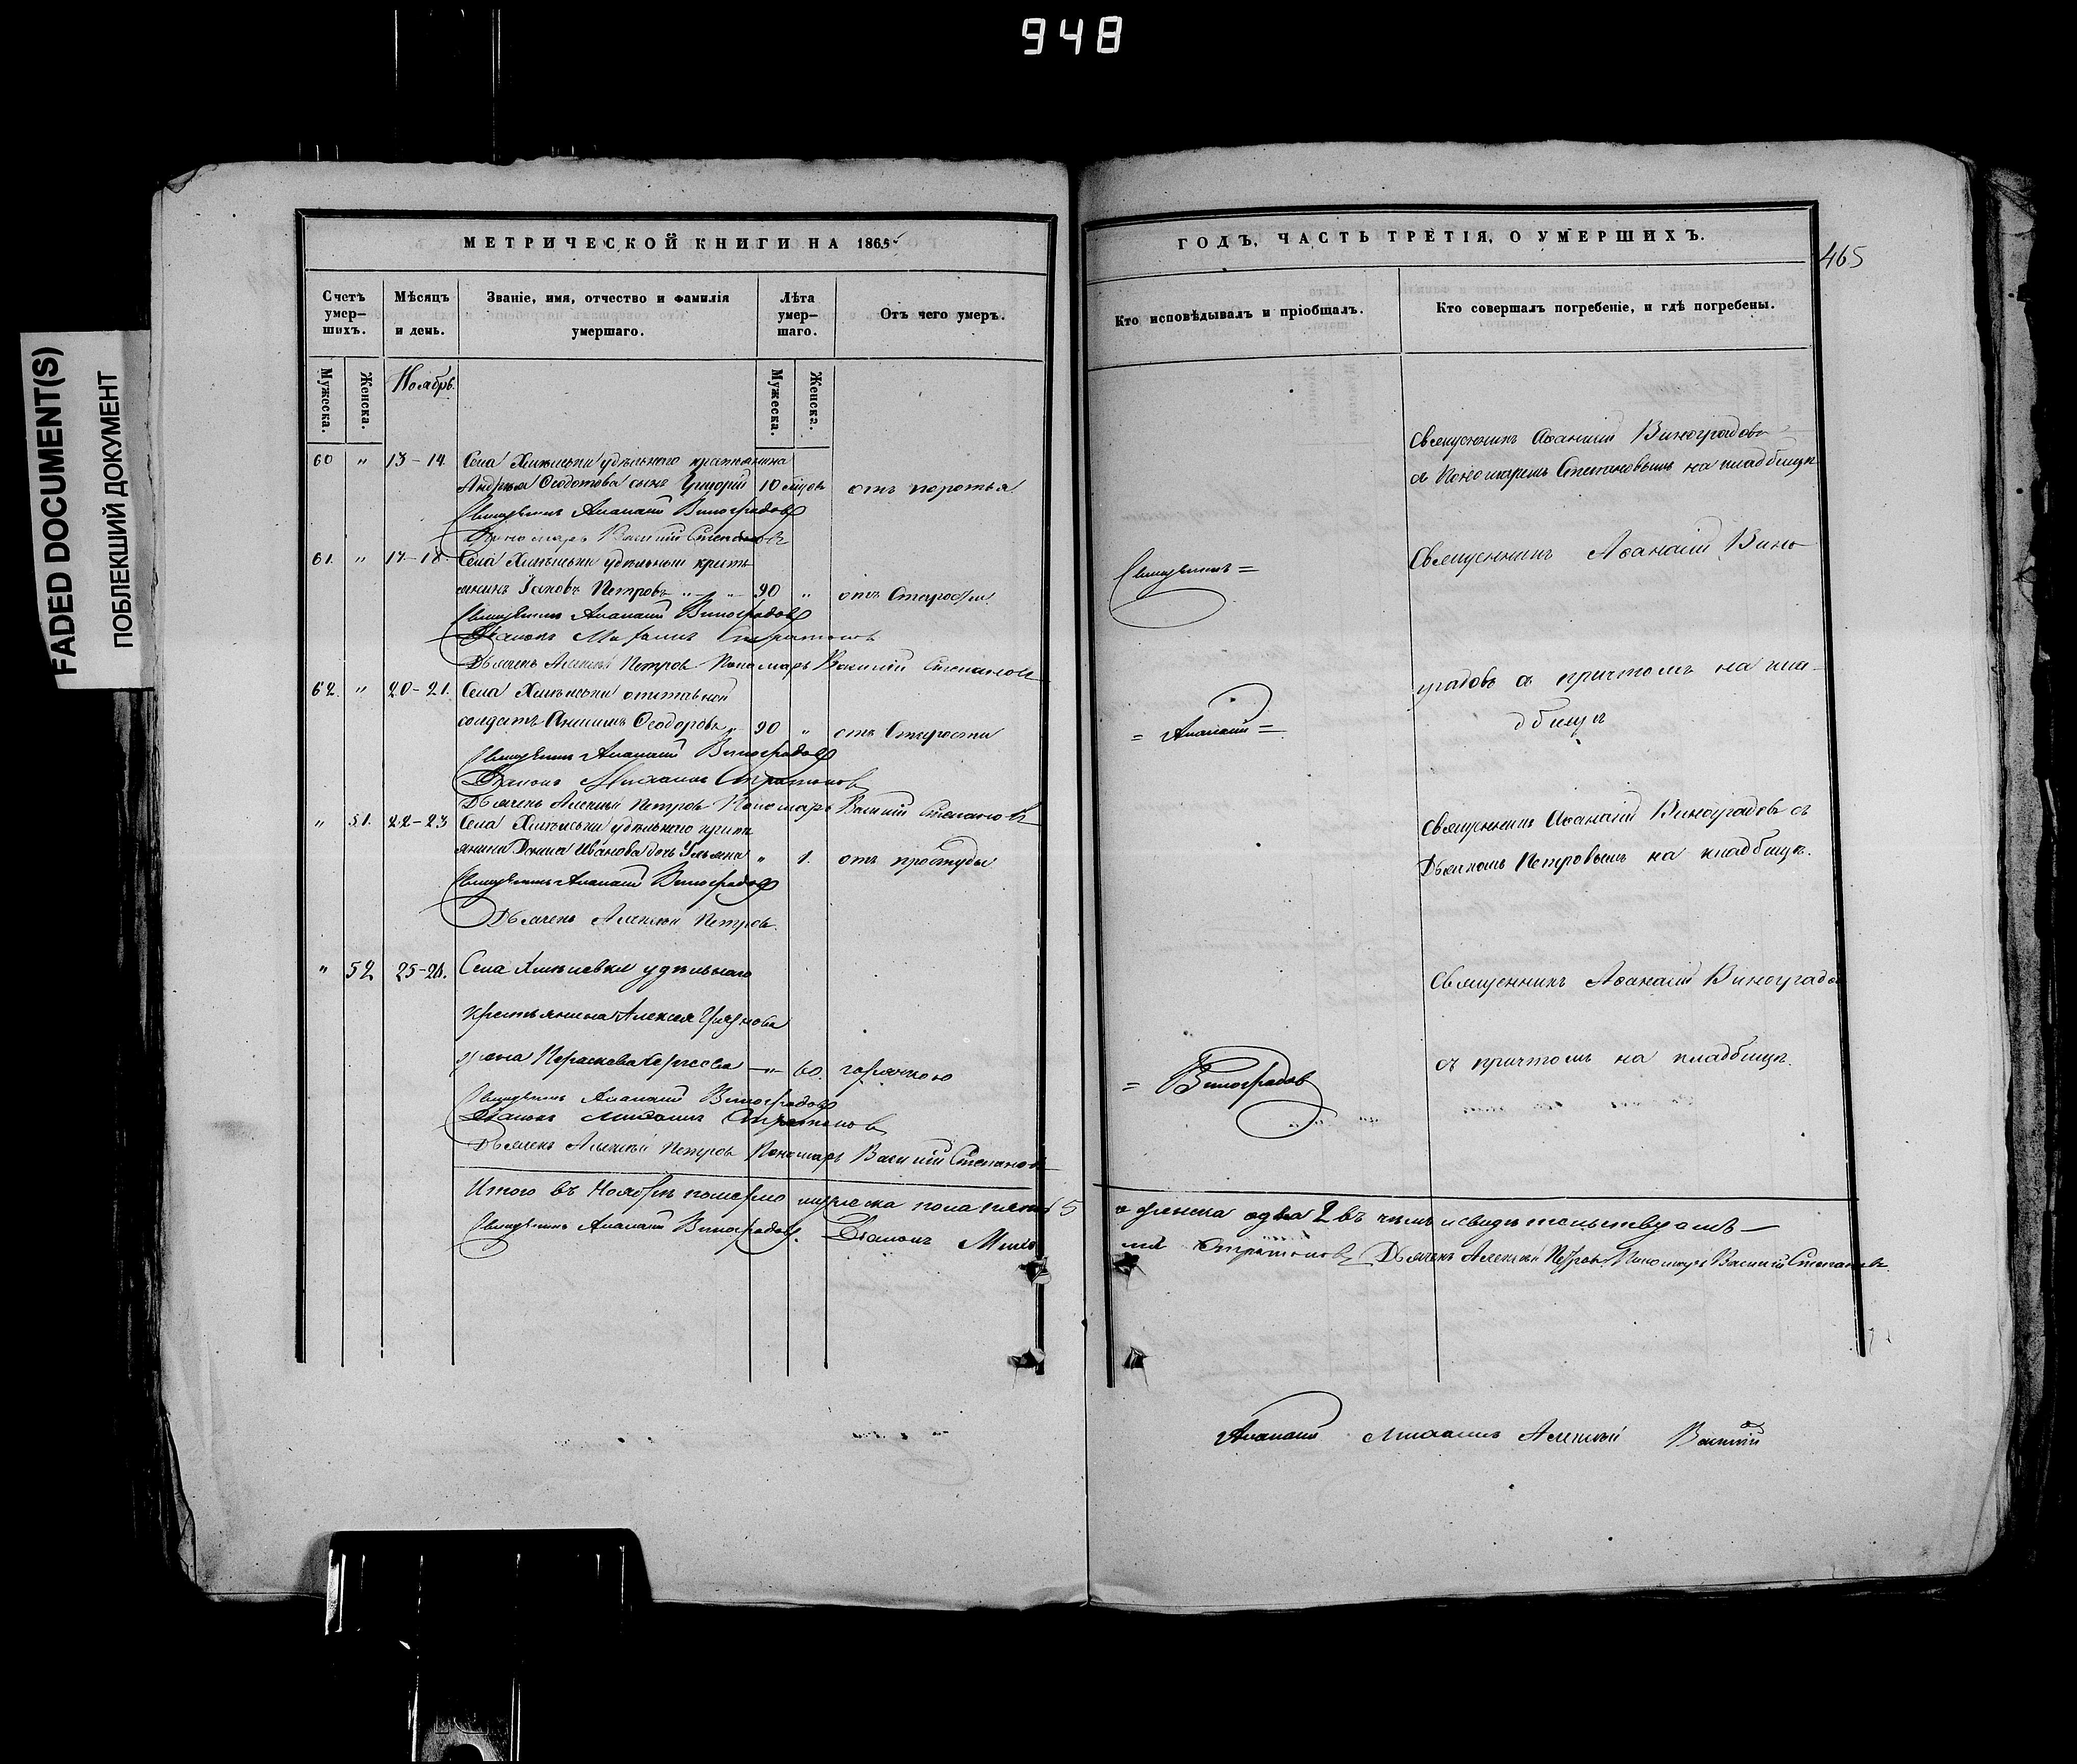 948
FADED DOCUMENT(S)
ПОБЛЕКШИЙ ДОКУМЕНТ
МЕТРИЧЕСКОЙ КНИГИ НА 1865
Счетъ умер-шихъ.
Мѣсяцъ и день.
Званіе, имя, отчество и фамилія умершаго.
Лѣта умер-шаго.
Отъ чего умеръ.
Мужеска.
Женска.
Ноябрь.
Мужеска.
Женска.
60 " 13-14 Села удѣльнаго крестьянина
Андрея Ѳеодотова сынъ Григорій 10 отъ
Священникъ Аѳанасій Виноградовъ
Пономарь Василій Степановъ
61. " 17-18. Села удѣльный кресть
янинъ Іаковъ Петровъ " " 90 " отъ старости.
Священникъ Аѳанасій Виноградовъ
Діаконъ Михаилъ Стратоновъ
Дьячекъ Алексѣй Петровъ Пономарь Василій Степановъ
62. " 20-21. Села отставной
солдатъ Ѳеодоровъ " 90 " отъ старости
Священникъ Аѳанасій Виноградовъ
Діаконъ Михаилъ Стратоновъ
Дьячекъ Алексѣй Петровъ Пономарь Василій Степановъ
" 51. 22-23 Села удѣльнаго кресть
янина Иванова дочь Ульяна " 1. отъ простуды
Священникъ Аѳанасій Виноградовъ
Дьячекъ Алексѣй Петровъ.
" 52 25-26. Села удѣльнаго
крестьянина Алексея
жена 60. горячкою
Священникъ Аѳанасій Виноградовъ
Діаконъ Михаилъ Стратоновъ
Дьячекъ Алексѣй Петровъ Пономарь Василій Степановъ
Итого въ Ноябрѣ померло мужеска пола
Священникъ Аѳанасій Виноградовъ. Діаконъ Миха
ГОДЪ, ЧАСТЬ ТРЕТІЯ, О УМЕРШИХЪ.
465
Кто исповѣдывалъ и пріобщалъ.
Кто совершалъ погребеніе, и гдѣ погребены.
Священникъ Аѳанасій Виноградовъ
съ Пономаремъ Степановымъ на кладбищѣ
Священникъ =
Священникъ Аѳанасій Вино-
градовъ съ причтомъ на кла-
дбищѣ
= Аѳанасій =
Священникъ Аѳанасій Виноградовъ съ
Дьячкомъ Петровымъ на кладбищѣ.
Священникъ Аѳанасій Виноградовъ
съ причтомъ на кладбищѣ.
= Виноградовъ
женска 2 въ чемъ и свидѣтельствуемъ
илъ Стратоновъ Дьячекъ Алексѣй Петровъ Пономарь Василій Степановъ
Аѳанасій Михаилъ Алексѣй Василій